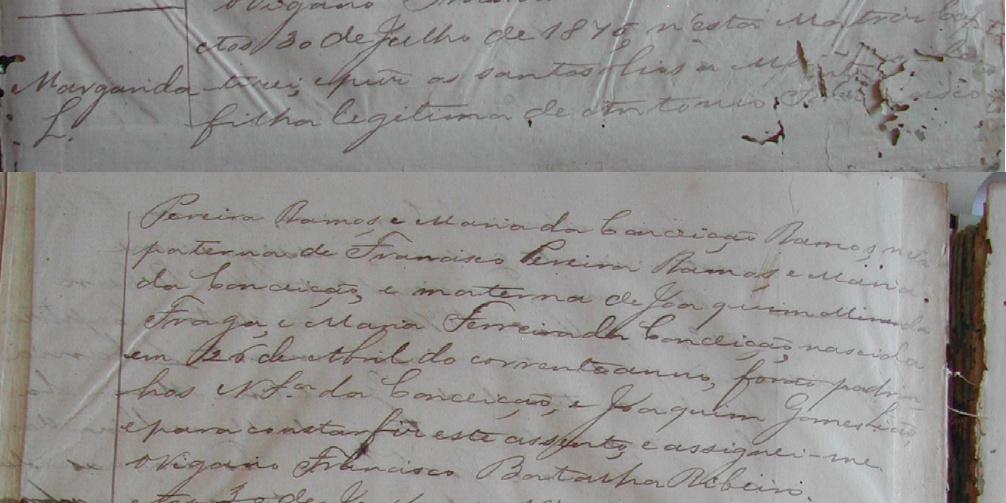 O Vigario
Aos 30 de Julho de 1876 n'esta Matriz bap
Margarida
L.
tizei, e puz os santos olios a
filha legitima de Antonio
Pereira Ramos, e Maria da Conceição Ramos, neta
paterna de Francisco Pereira Ramos, e Maria
da Conceição, e materna de Joaquim Miranda
Fraga, e Maria Ferreira da Conceição, nascida
em 26 de Abril do corrente anno, forão padri
nhos N. Srª da Conceição, e Joaquim Gomes Leão
e para constar fiz este assento e assignei-me
O Vigario Francisco Baptalha Ribeiro.
Aos 30 de